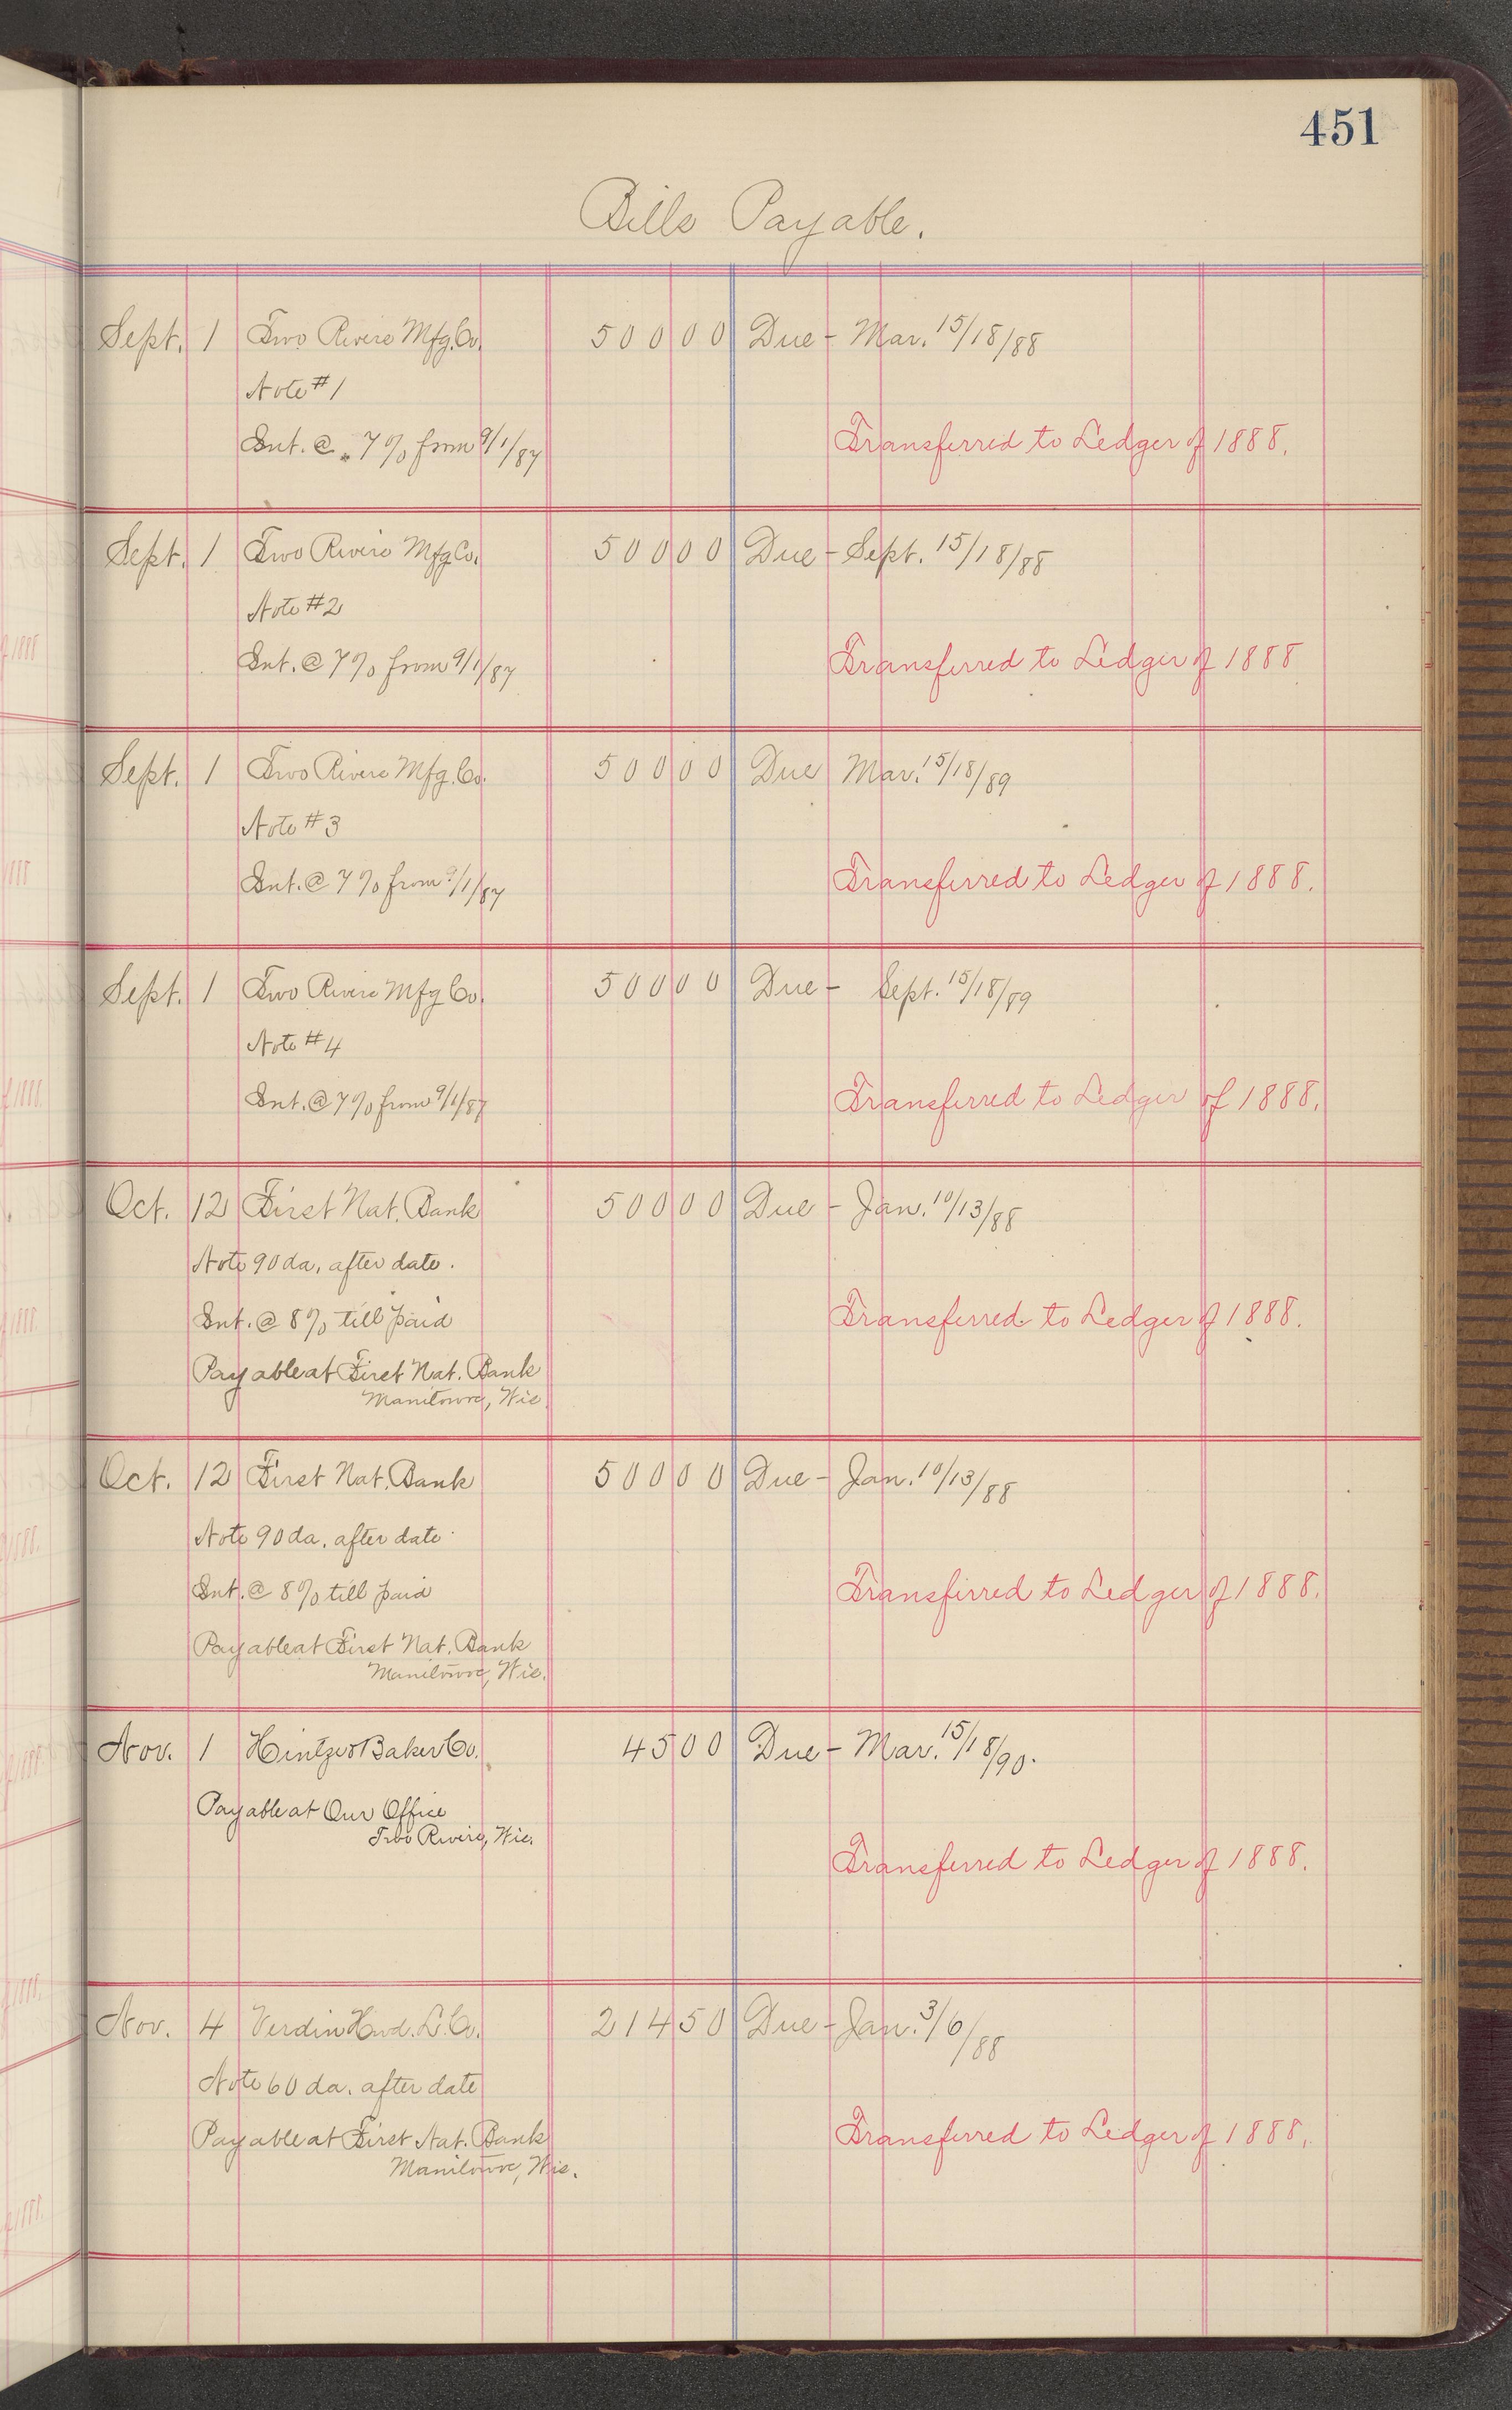 451
Bills Payable.
Sept. 1 Two Rivers Mfg. Co. 500 00 Due - Mar. 15/18/88
Note #1
Int. @ 7% from 9/1/87
Transferred to Ledger of 1888.
Sept. 1 Two Rivers Mfg Co. 500 00 Due - Sept. 15/18/88
Note #2
Int. @ 7% from 9/1/87
Transferred to Ledger of 1888
Sept. 1 Two Rivers Mfg. Co. 500 00 Due Mar. 15/18/89
Note #3
Int. @ 7% from 9/1/87
Transferred to Ledger of 1888.
Sept. 1 Two Rivers Mfg Co. 500 00 Due - Sept. 15/18/89
Note #4
Int. @ 7% from 9/1/87
Transferred to Ledger of 1888.
Oct. 12 First Nat. Bank 500 00 Due - Jan. 10/13/88
Note 90 da. after date.
Int. @ 8% till paid
Transferred to Ledger of 1888.
Payable at First Nat. Bank
Manitowoc, Wis.
Oct. 12 First Nat. Bank 500 00 Due - Jan. 10/13/88
Note 90 da. after date
Int. @ 8% till paid
Transferred to Ledger of 1888.
Payable at First Nat. Bank
Manitowoc, Wis.
Nov. 1 Baker Co. 45 00 Due - Mar. 15/18/90.
Payable at Our Office
Two Rivers, Wis.
Transferred to Ledger of 1888.
Nov. 4 Verdin Hwd. L. Co. 214 50 Due - Jan. 3/6/88
Note 60 da. after date
Payable at First Nat. Bank
Manitowoc, Wis.
Transferred to Ledger of 1888.